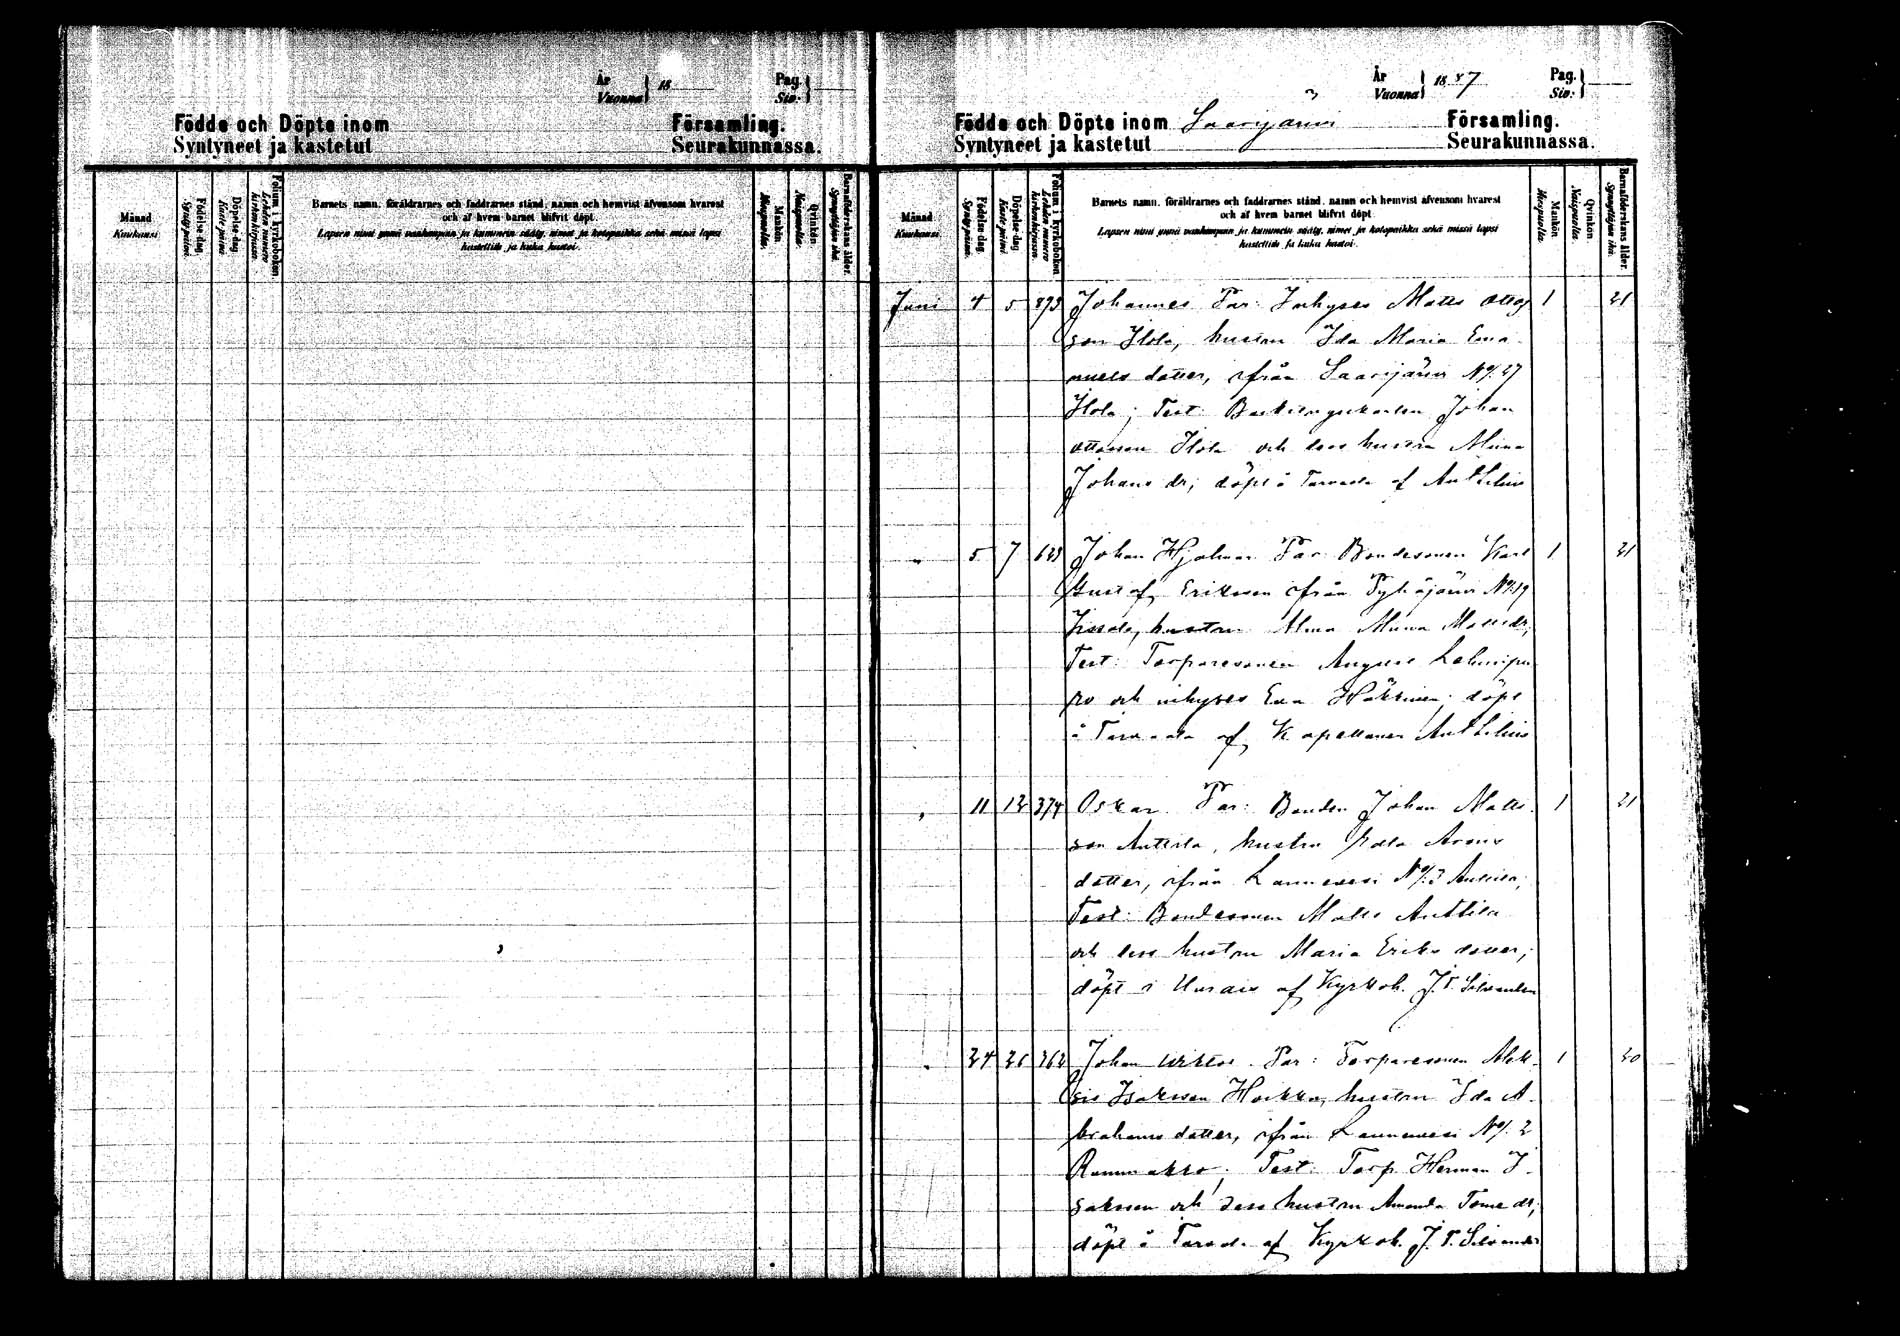 År
Vuonna } 18
Pag.
Siv. }
Födde och Döpte inom Församling.
Syntyneet ja kastetut Seurakunnassa.
Månad
Kuukausi
Födelse-dag.
Syntympäivä.
Döpelse-dag.
Kaste-päivä.
Folium i kyrkoboken.
Lehden numero kirkonkirjassa.
Barnets namn, föräldrarnes och faddrarnes stånd, namn och hemvist äfvensom hvarest
och af hvem barnet blifvit döpt.
Lapsen nimi ynnä vanhempain ja kummein sääty, nimet ja kotopaikka sekä missä lapsi
kastettiin ja kuka kastoi.
Mankön.
Miespuolia.
Qvinkön.
Naispuolia.
Barnaföderskans ålder.
Synnyttäjän ikä.
År
Vuonna } 1887
Pag.
Siv. }
Födde och Döpte inom Saarijärvi Församling.
Syntyneet ja kastetut Seurakunnassa.
Månad
Kuukausi
Födelse-dag.
Syntympäivä.
Döpelse-dag.
Kaste-päivä.
Folium i kyrkoboken.
Lehden numero kirkonkirjassa.
Barnets namn, föräldrarnes och faddrarnes stånd, namn och hemvist äfvensom hvarest
och af hvem barnet blifvit döpt.
Lapsen nimi ynnä vanhempain ja kummein sääty, nimet ja kotopaikka sekä missä lapsi
kastettiin ja kuka kastoi.
Mankön
Miespuolia.
Qvinkön
Naispuolia.
Barnaföderskans ålder.
Synnyttäjän ikä.
Juni 4 5 893 Johannes Far: Inhyses Matts Ottos 1 21
son Ilola, hustru Ida Maria Ema
nuels dotter, ifrån Saarijärvi No. 27
Ilola; Test: Johan
Ottosson Ilola och dess hustru
Johans dr; döpt å Tarvala af Anthelius
" 5 7 623 Johan Hjalmar Far Bondesonen Karl 1 21
Gustaf Eriksson ifrån Pyhäjärvi No. 19
hustru Alma Matts dr;
Test: Torparesonen August Lehmipu
ro och inhyses Eva Häkkinen; döpt
å Tarvala af Kapellanen Anthelius
" 11 12 374 Oskar Far: Bonden Johan Matts 1 21
son Anttila, hustru
dotter, ifrån Lannevesi No. 3 Anttila;
Test: Bondesonen Matts Anttila
och dess hustru Maria Eriks dotter;
döpt i Uurais af Kyrkoh. J. T. Silvander
" 24 26 362 Johan Wiktor. Far: Torparesonen Alek 1 20
sis Isaksson Hokka, hustru Ida A
brahams dotter, ifrån Lannevesi No. 2
Test: Torp. Herman I
saksson och dess hustru Amanda Toms dr;
döpt å Tarvala af Kyrkoh. J. T. Silvander